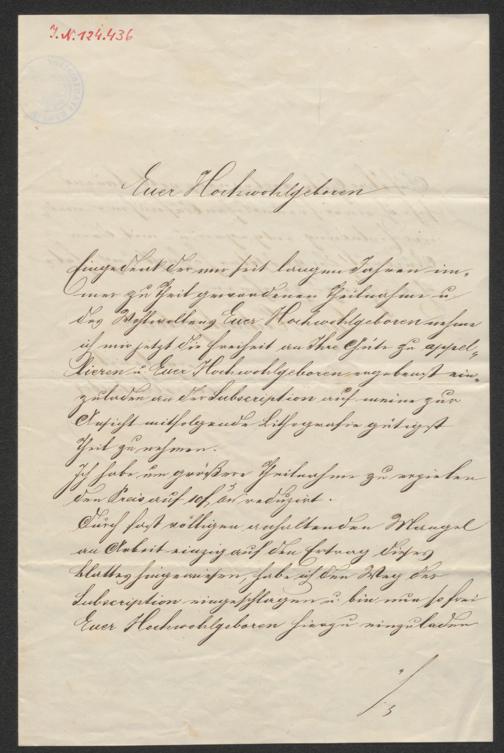 J. N. 124.436
Euer Hochwohlgeboren
Eingedenk der mir seit langen Jahren im-
mer zu Theil gewordenen Theilnahme u
des Wohlwollens Euer Hochwohlgeboren nehme
ich mir jetzt die Freiheit an Ihre Güte zu appel-
lieren u Euer Hochwohlgeboren ergebenst ein-
zuladen an der Subscription auf meine zur
Ansicht mitfolgende Lithografie gütigst
Theil zu nehmen.
Ich habe um größere Theilnahme zu erzielen
den Preis auf reduzirt.
Durch fast völligen anhaltenden Mangel
an Arbeit einzig auf den Ertrag dieses
Blattes hingewiesen, habe ich den Weg der
Subscription eingeschlagen u. bin nun so frei
Euer Hochwohlgeboren hierzu einzuladen